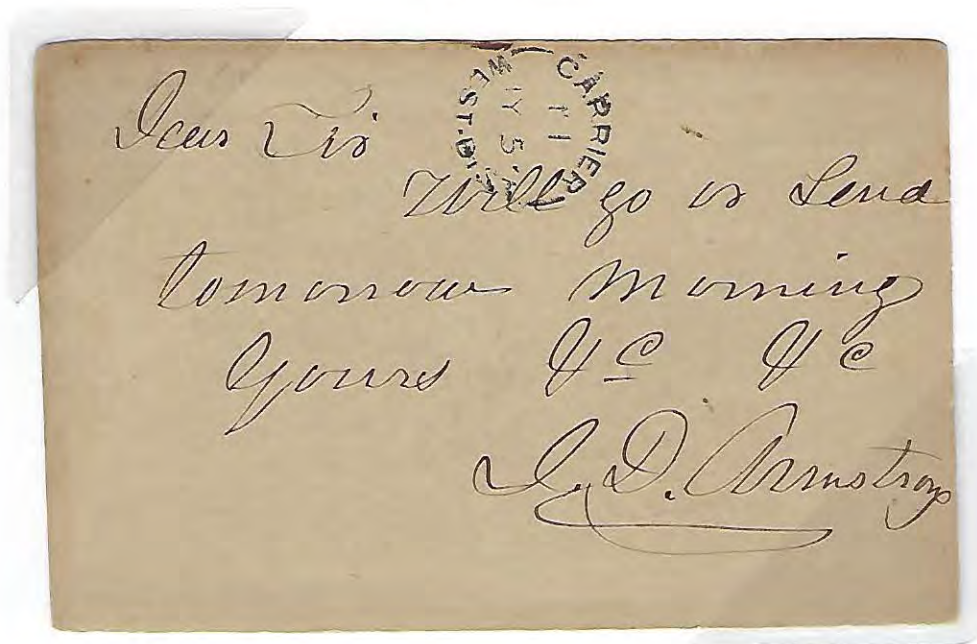 CARRIER
WEST. DIV.
MY 5
11
Dear Sir
Will go or Send
tomorrow morning
Yours &c &c
D. Armstrong